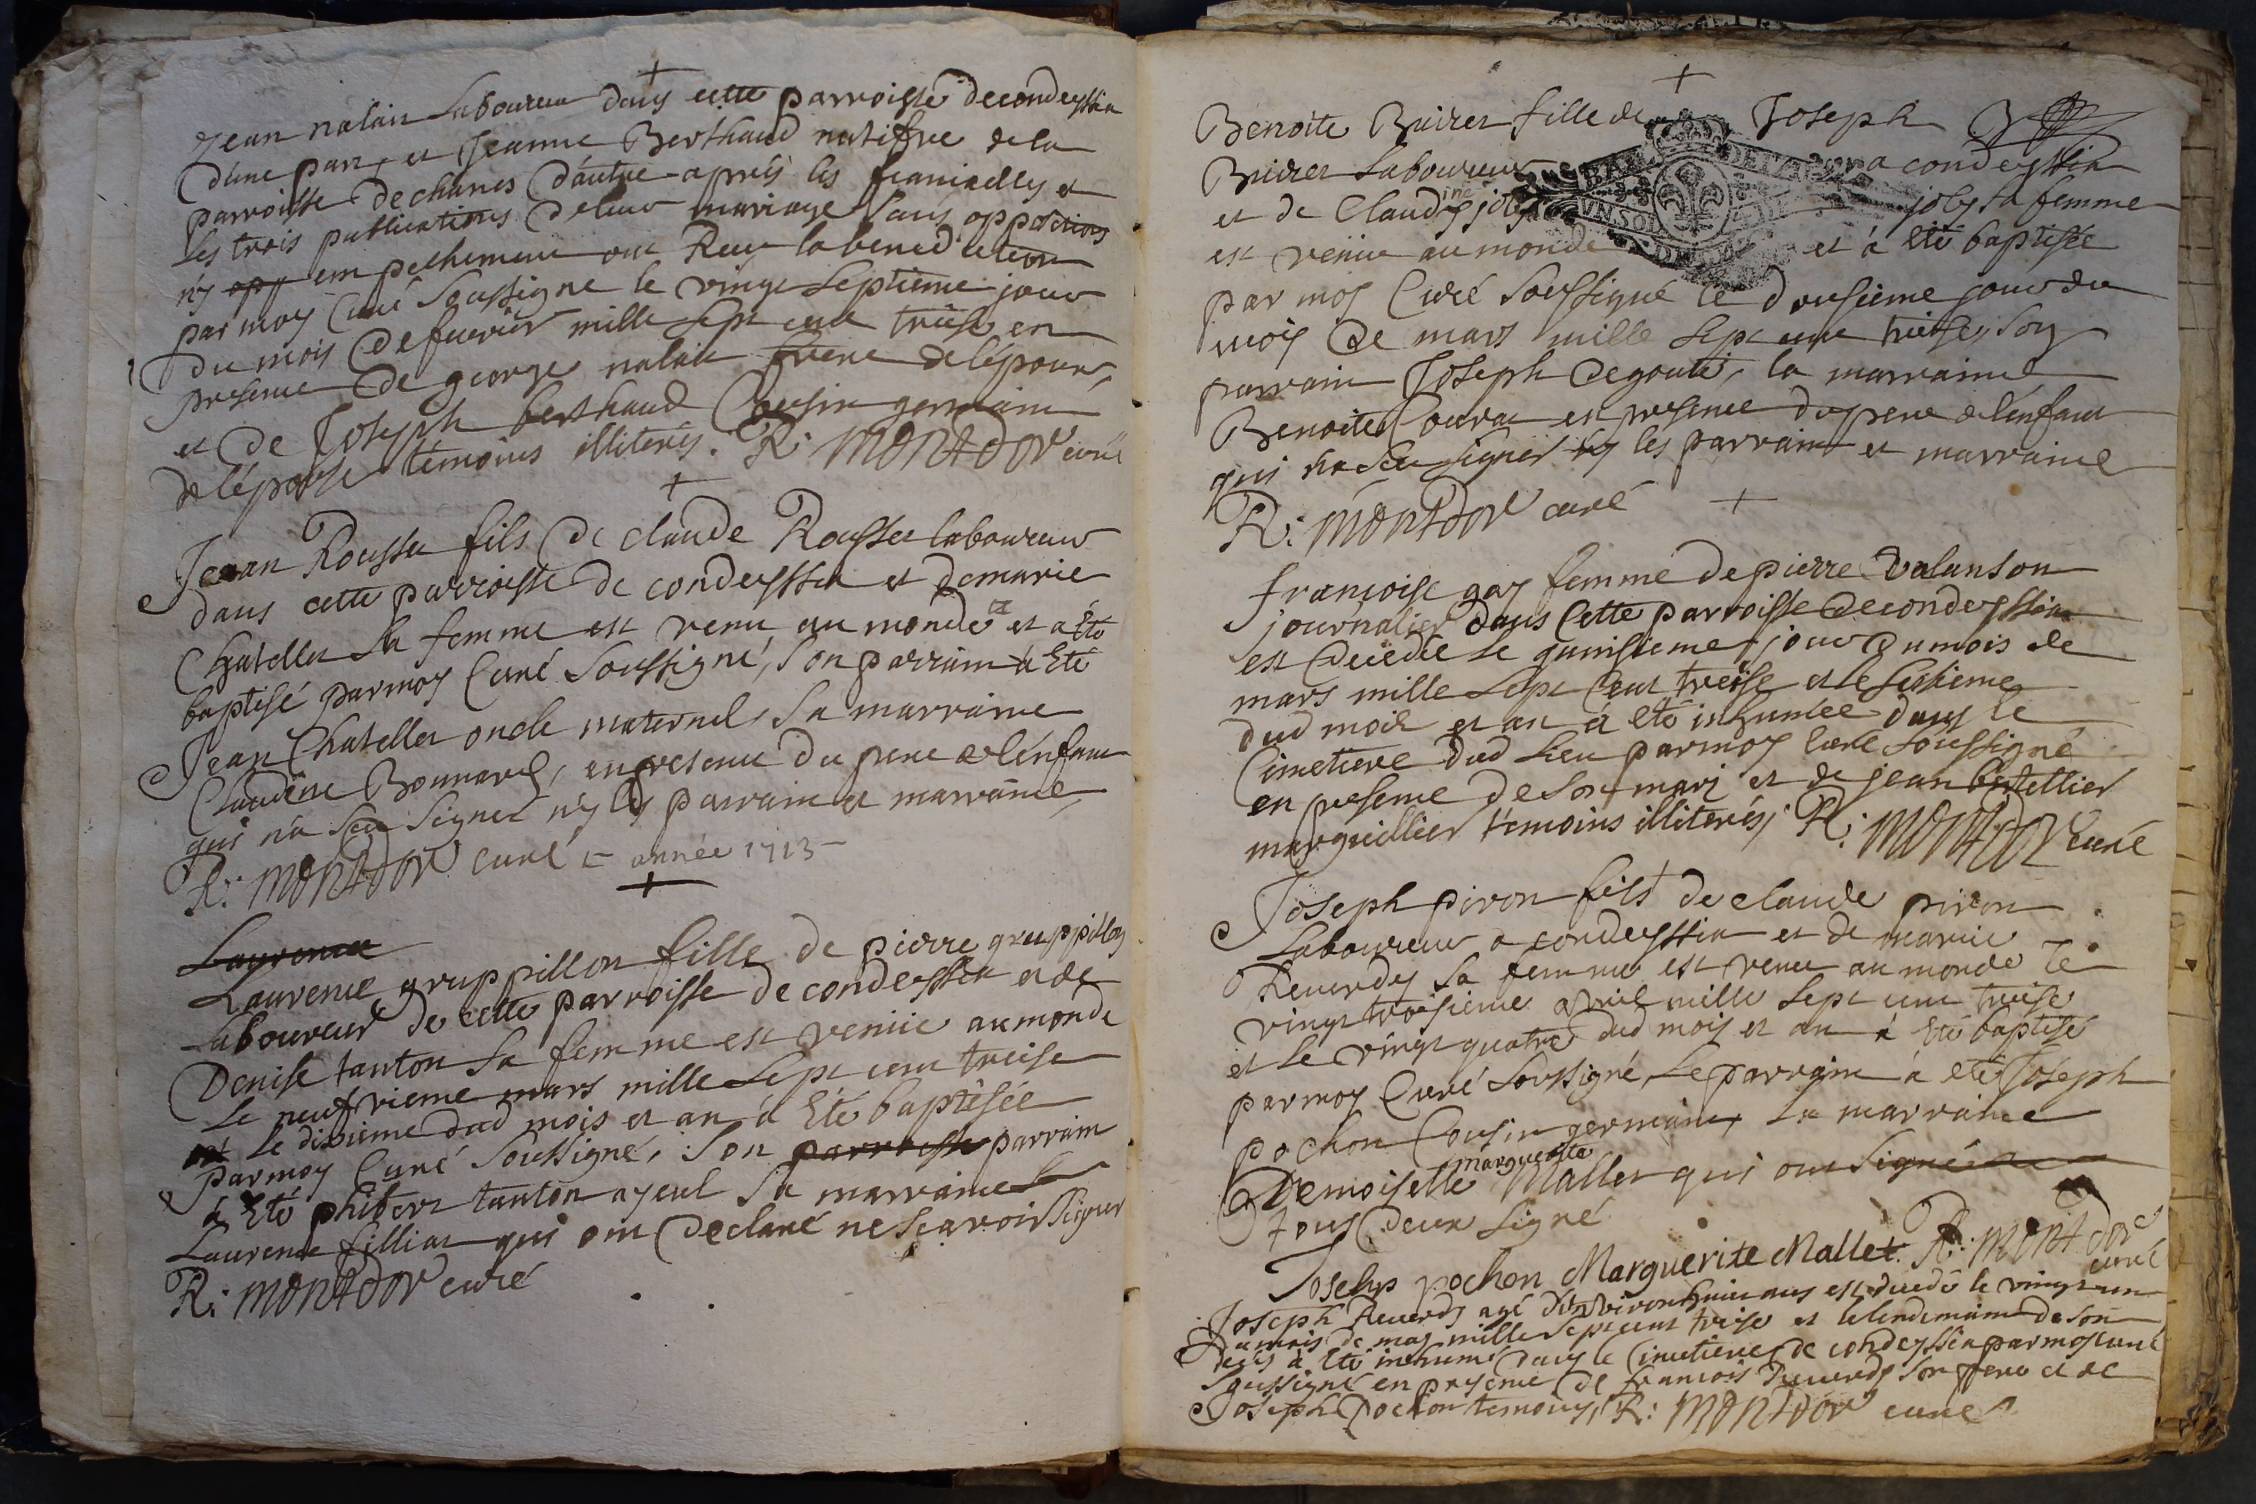 Jean nalain laboureur dans cette parroisse decondeyssia
d'une part, et Jeanne Berthaud natifve de la
parroisse de chanes d'autre après les fiancielles et
les trois publications deleur mariage sans oppositions
n'y opp empechement ont Receu la benediction
par moy Curé soussigne le vingt septieme jour
du mois de fuerier mille sept cent treise en
presence de george nalain frere de lépoux,
et de Joseph berthaud Cousin germain
de lépouse témoins illiterés. R: MONTDOR curé
Jean Rousset fils de claude Rousset laboureur
dans cette parroisse de condeyssia et demarie
Chatellet sa femme est venu au monde et a été
baptisé parmoy Curé soussigné, son parrain a été
Jean Chatellet oncle maternel, sa marraine
Claudine Bonnarel, en presence du pere de lénfant
qui n'a sceu signer n'y les parrain et marraine,
R: MONTDOR curé - année 1713 -
Laurence
Laurence gruppillon fille de pierre gruppillon
laboureur de cette parroisse de condeyssia et de
Denise tanton sa femme est veniie au monde
le neufvieme mars mille sept cent treise
et le dixieme dud mois et an à été baptisée
parmoy Curé soussigné, son parroisse parrain
à été phibert tanton ayeul sa marraine
Laurence fillian qui ont declaré ne sçavoir signer
R: MONTDOR curé
Benoite Buiret fille de Joseph
Buiret laboureur a condeyssia
et de Claudine joly joly sa femme
est veniie au monde et à été baptisée
par moy Curé soussigné le dousieme jour du
mois de mars mille sept cent treise, son
parrain Joseph degouti, la marraine
Benoite Courat en presence du pere de lénfant
qui na sceu signer ny les parrain et marraine
R: MONTDOR curé
francoise gay femme de pierre valanson
journalier dans cette parroisse de condeyssia
est décédée le quinsieme jour du mois de
mars mille sept cent treise et le seisieme
dud mois et an à été inhumée dans le
Cimetiere dud lieu parmoy curé soussigné
en presence de son mari et de jean bertellier
marguillier témoins illiterés, R: MONTDOR curé
Joseph piron fils de claude piron
laboureur a condeyssia et de marie
Reuerdy sa femme est venu au monde le
vingt troisieme avril mille sept cent treise
et le vingt quatre dud mois et an à été baptisé
parmoy Curé soussigné, le parrain à été Joseph
pochon Cousin germain, la marraine
Demoiselle marguerite Mallet qui ont signé
tous deux signé
Joseph pochon Marguerite Mallet. R: MONTDOR curé
Joseph Reuerdy agé d'environ huit ans est decedé le vingt un
du mois de may mille sept cent treise et le lendemain de son
decés à été inhumé dans le Cimetiere de condeyssia parmoy curé
soussigné en presence de francois Reuerdy son pere et de
Joseph Pochon temoins, R: MONTDOR curé